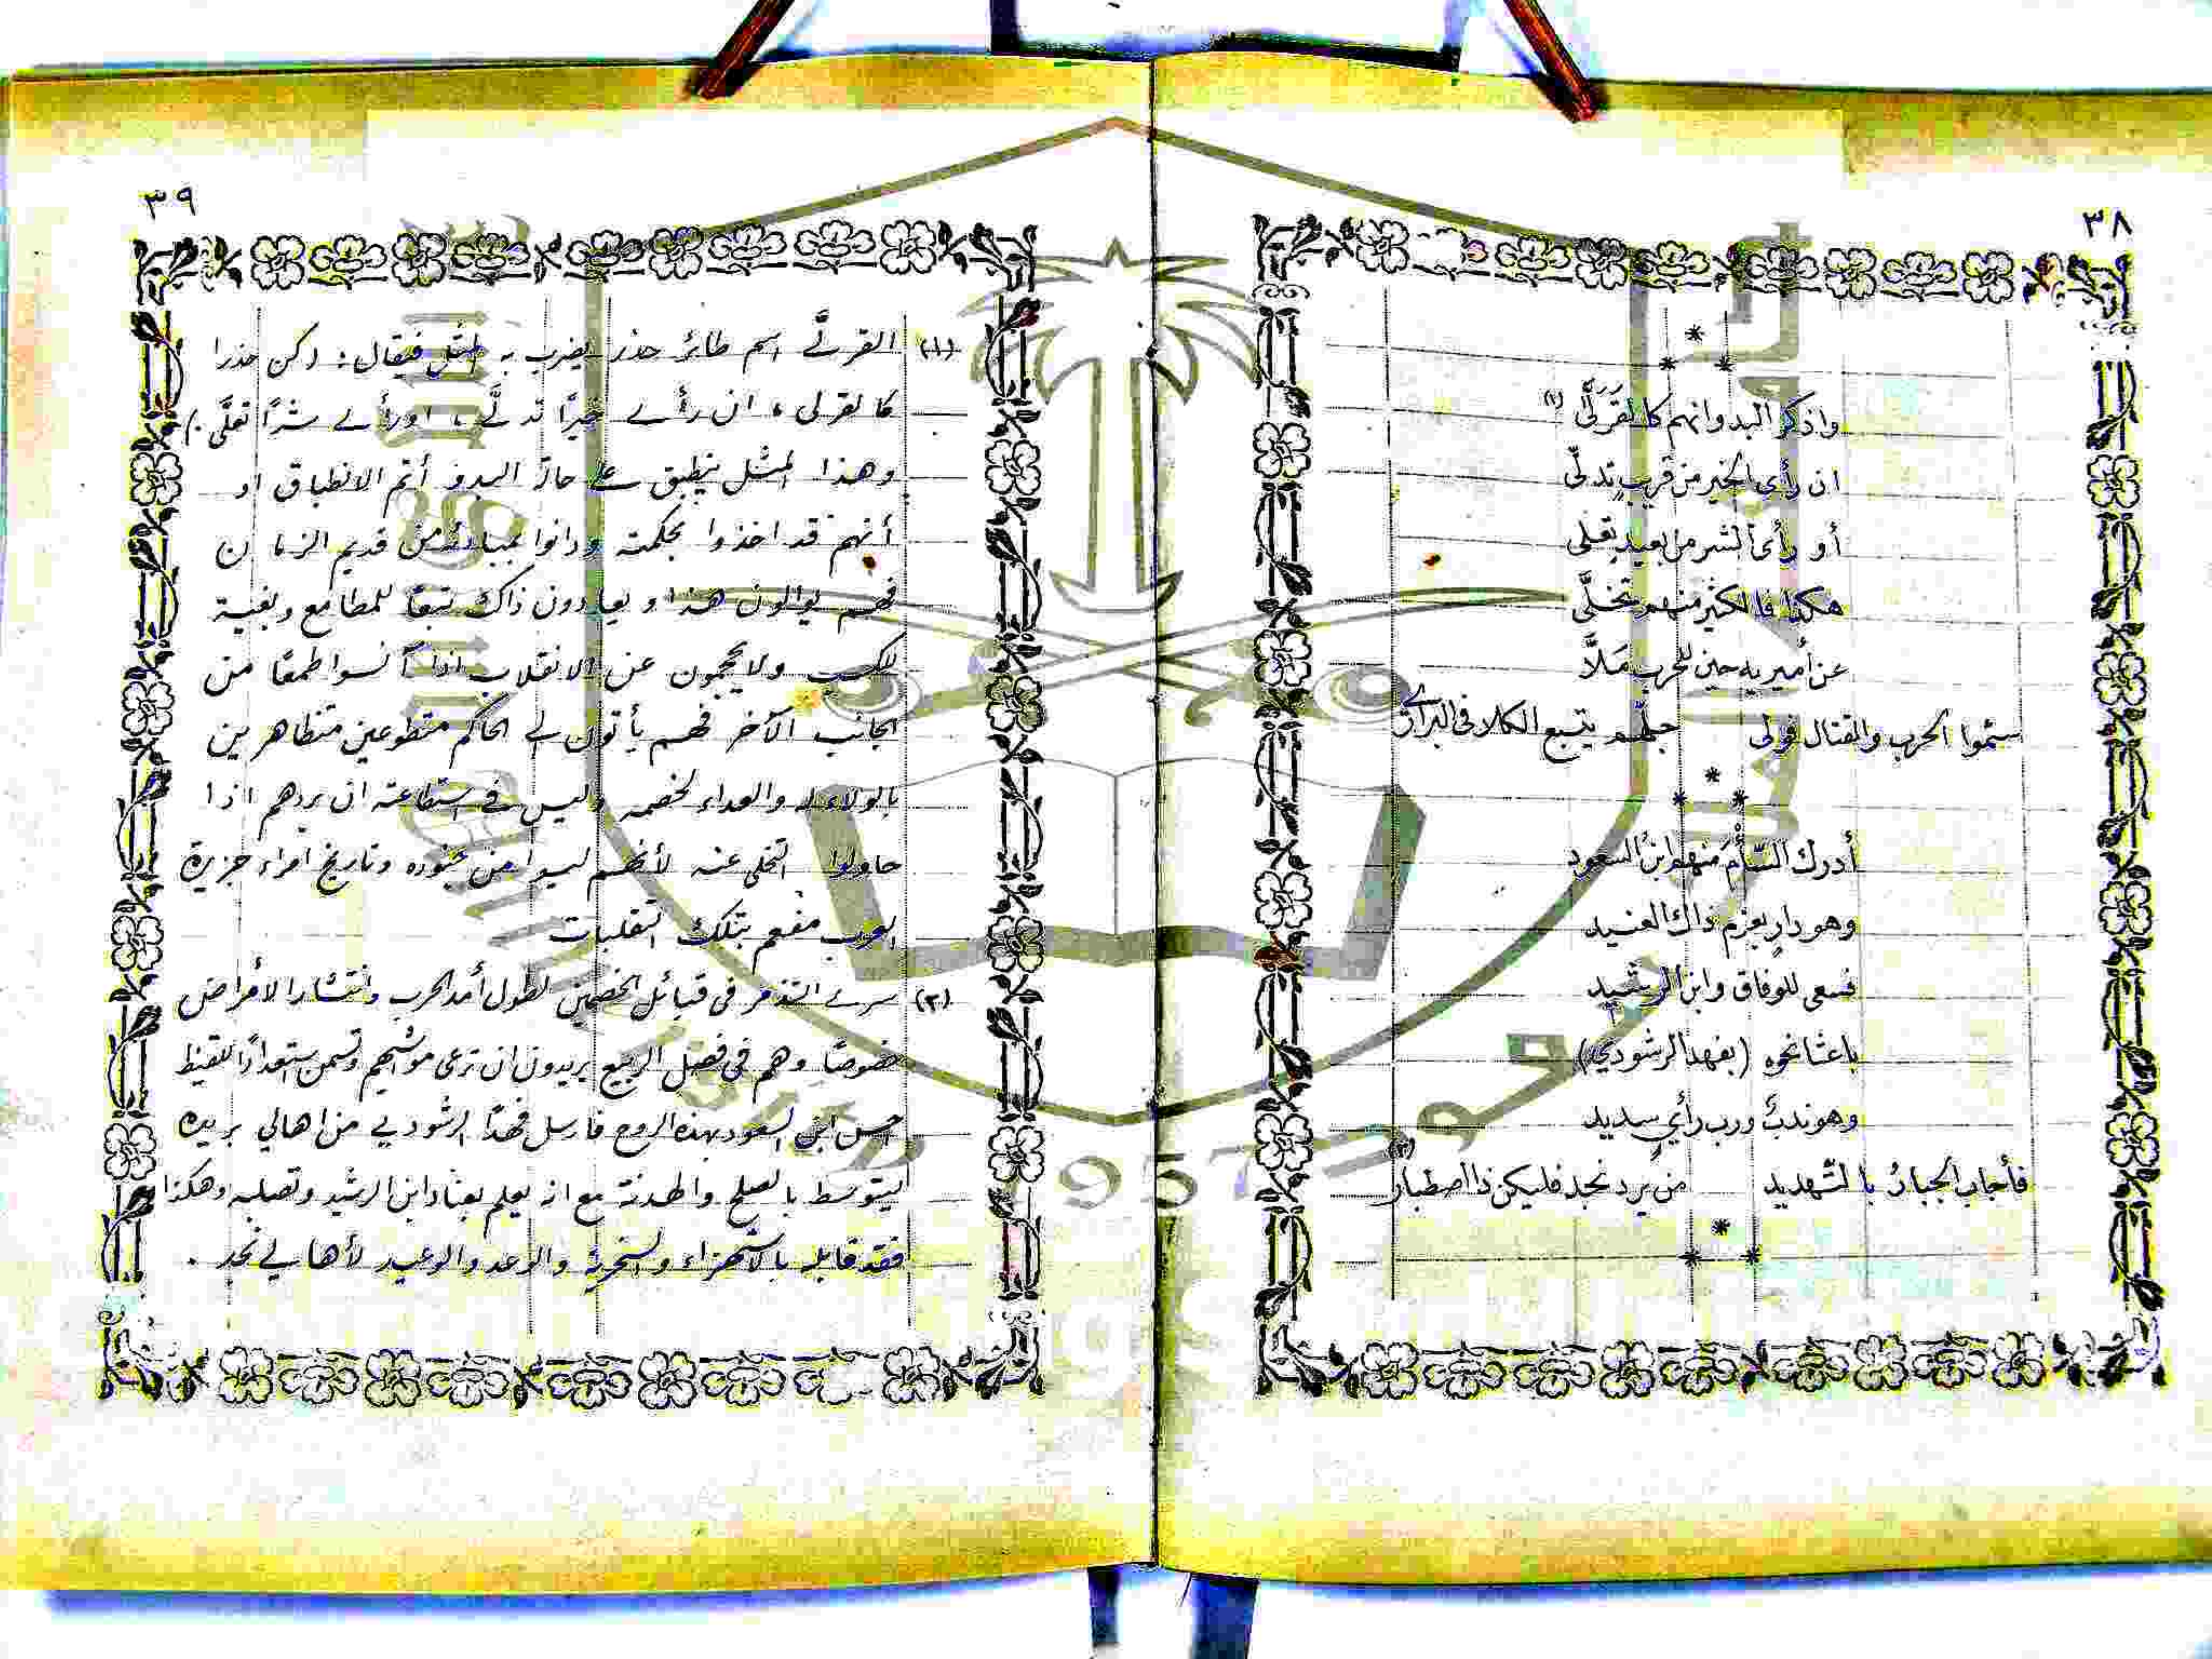 ٣٨
واذكر البدو انهم كالقَرِلَّى (١)
ان رأى الخير من قريبٍ تدلّى
أو رأى الشر من بعيدٍ تعلى
هكذا فالكثير منهم تخلَّى
عن أميريه حين للحرب مَلاَّ
سئموا الحرب والقتال فولى جلّهم يتبع الكلا في البراري
أدرك السّأمَ منهم ابنُ السعود
وهو دارٍ بعزم ذاك العنيد
فسعى للوفاق وابن الرشيد
باعثا نحوه (بفهد الرشودي)
وهو ندبٌ ورب رأيٍ سديد
فأجاب الجبارُ بالتهديد من يرد نجد فليكن ذا اصطبار
٣٩
(١) القرلَّى اسم طائر حذر يضرب به المثل فيقال: (كن حذرا
كالقرلى، ان رأى خيرًا تدلَّى، او رأى شرًا تعلَّى.)
وهذا المثل ينطبق على حالة البدو أتم الانطباق او
أنهم قد اخذوا بحكمته ودانوا بمبادئه من قديم الزمان
فهم يوالون هذا ويعادون ذاك تبعًا للمطامع وبغية
للكسب ولا يحجمون عن الانقلاب اذا آنسوا طمعًا من
الجانب الآخر فهم يأتون الى الحاكم متطوعين متظاهرين
بالولاء له والعداء لخصمه وليس في استطاعته ان يردهم اذا
حاولوا التخلى عنه لأنهم ليسوا من جنوده وتاريخ امراء جزيرة
العرب مفعم بتلك التقلبات
(٢) سرى التذمر في قبائل الخصمين لطول أمد الحرب وانتشار الأمراض
خصوصًا وهم في فصل الربيع يريدون ان ترعى مواشيهم وتسمن استعدادًا للقيظ
احس ابن السعود بهذه الروح فارسل فهدًا الرشودي من اهالي بريده
ليتوسط بالصلح والهدنة مع انه يعلم بعناد ابن الرشيد وتصلبه وهكذا
فقد قابله بالاستهزاء والسخرية والوعد والوعيد لأهالي نجد.